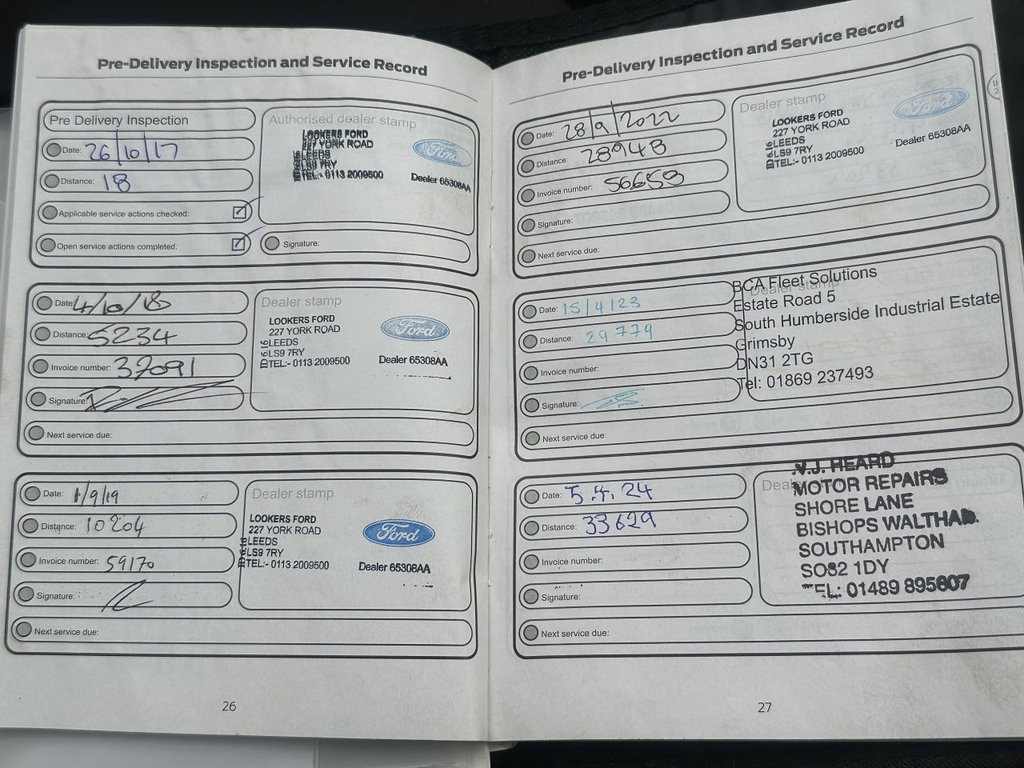 Pre-Delivery Inspection and Service Record
Pre Delivery Inspection
Date: 26/10/17
Distance: 18
Applicable service actions checked:
Open service actions completed:
Authorised dealer stamp
LOOKERS FORD
227 YORK ROAD
LEEDS
LS9 7RY
TEL:- 0113 2009500
Ford
Dealer 65308AA
Signature:
Date: 4/10/18
Distance: 5234
Invoice number: 37091
Signature:
Next service due:
Dealer stamp
LOOKERS FORD
227 YORK ROAD
LEEDS
LS9 7RY
TEL:- 0113 2009500
ID 6.16
Ford
Dealer 65308AA
Date: 1/9/19
Distance: 10204
Invoice number: 59170
Signature:
Next service due:
Dealer stamp
LOOKERS FORD
227 YORK ROAD
LEEDS
LS9 7RY
TEL:- 0113 2009500
Ford
Dealer 65308AA
26
Pre-Delivery Inspection and Service Record
Date: 28/9/2022
Distance: 28948
Invoice number: 56659
Signature:
Next service due:
Dealer stamp
LOOKERS FORD
227 YORK ROAD
LEEDS
LS9 7RY
TEL:- 0113 2009500
ID 6.16
Ford
Dealer 65308AA
Date: 15/4/23
Distance: 29779
Invoice number:
Signature:
Next service due:
Dealer stamp
BCA Fleet Solutions
Estate Road 5
South Humberside Industrial Estate
Grimsby
DN31 2TG
Tel: 01869 237493
Date: 5.4.24
Distance: 33629
Invoice number:
Signature:
Next service due:
Dea
W.J. HEARD
MOTOR REPAIRS
SHORE LANE
BISHOPS WALTHAM.
SOUTHAMPTON
SO32 1DY
TEL: 01489 895607
27